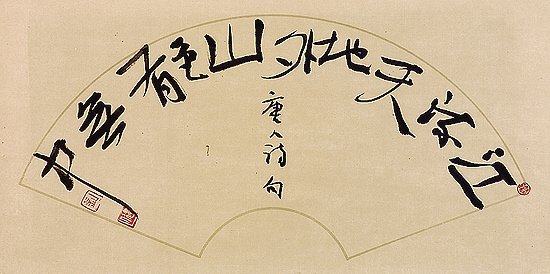 江流天地外山色有無中
唐人詩句